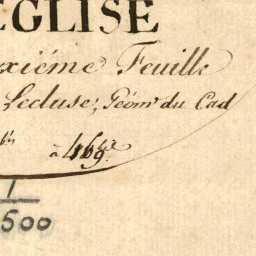 EGLISE
xiéme Feuille
Lecluse, Géom. du Cad
à 469.
1
500